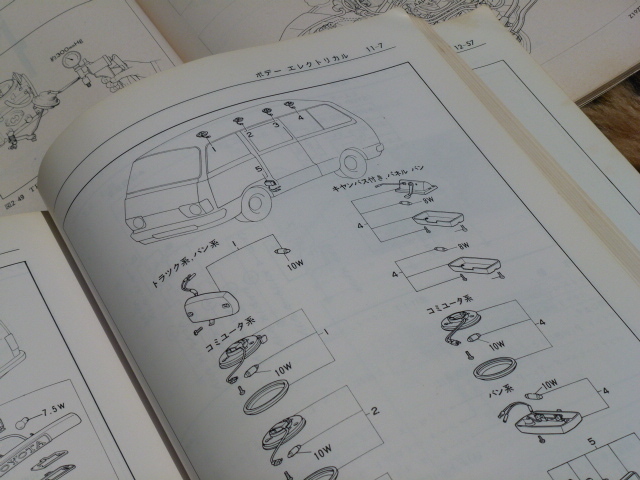 ボデー エレクトリカル 11-7
12-57
1
2
3
4
5
キャンバス付き,パネル バン
8W
4
8W
4
トラック系,バン系
1
10W
コミュータ系
1
10W
コミュータ系
4
10W
2
10W
バン系
10W
4
5
7.5W
TOYOTA